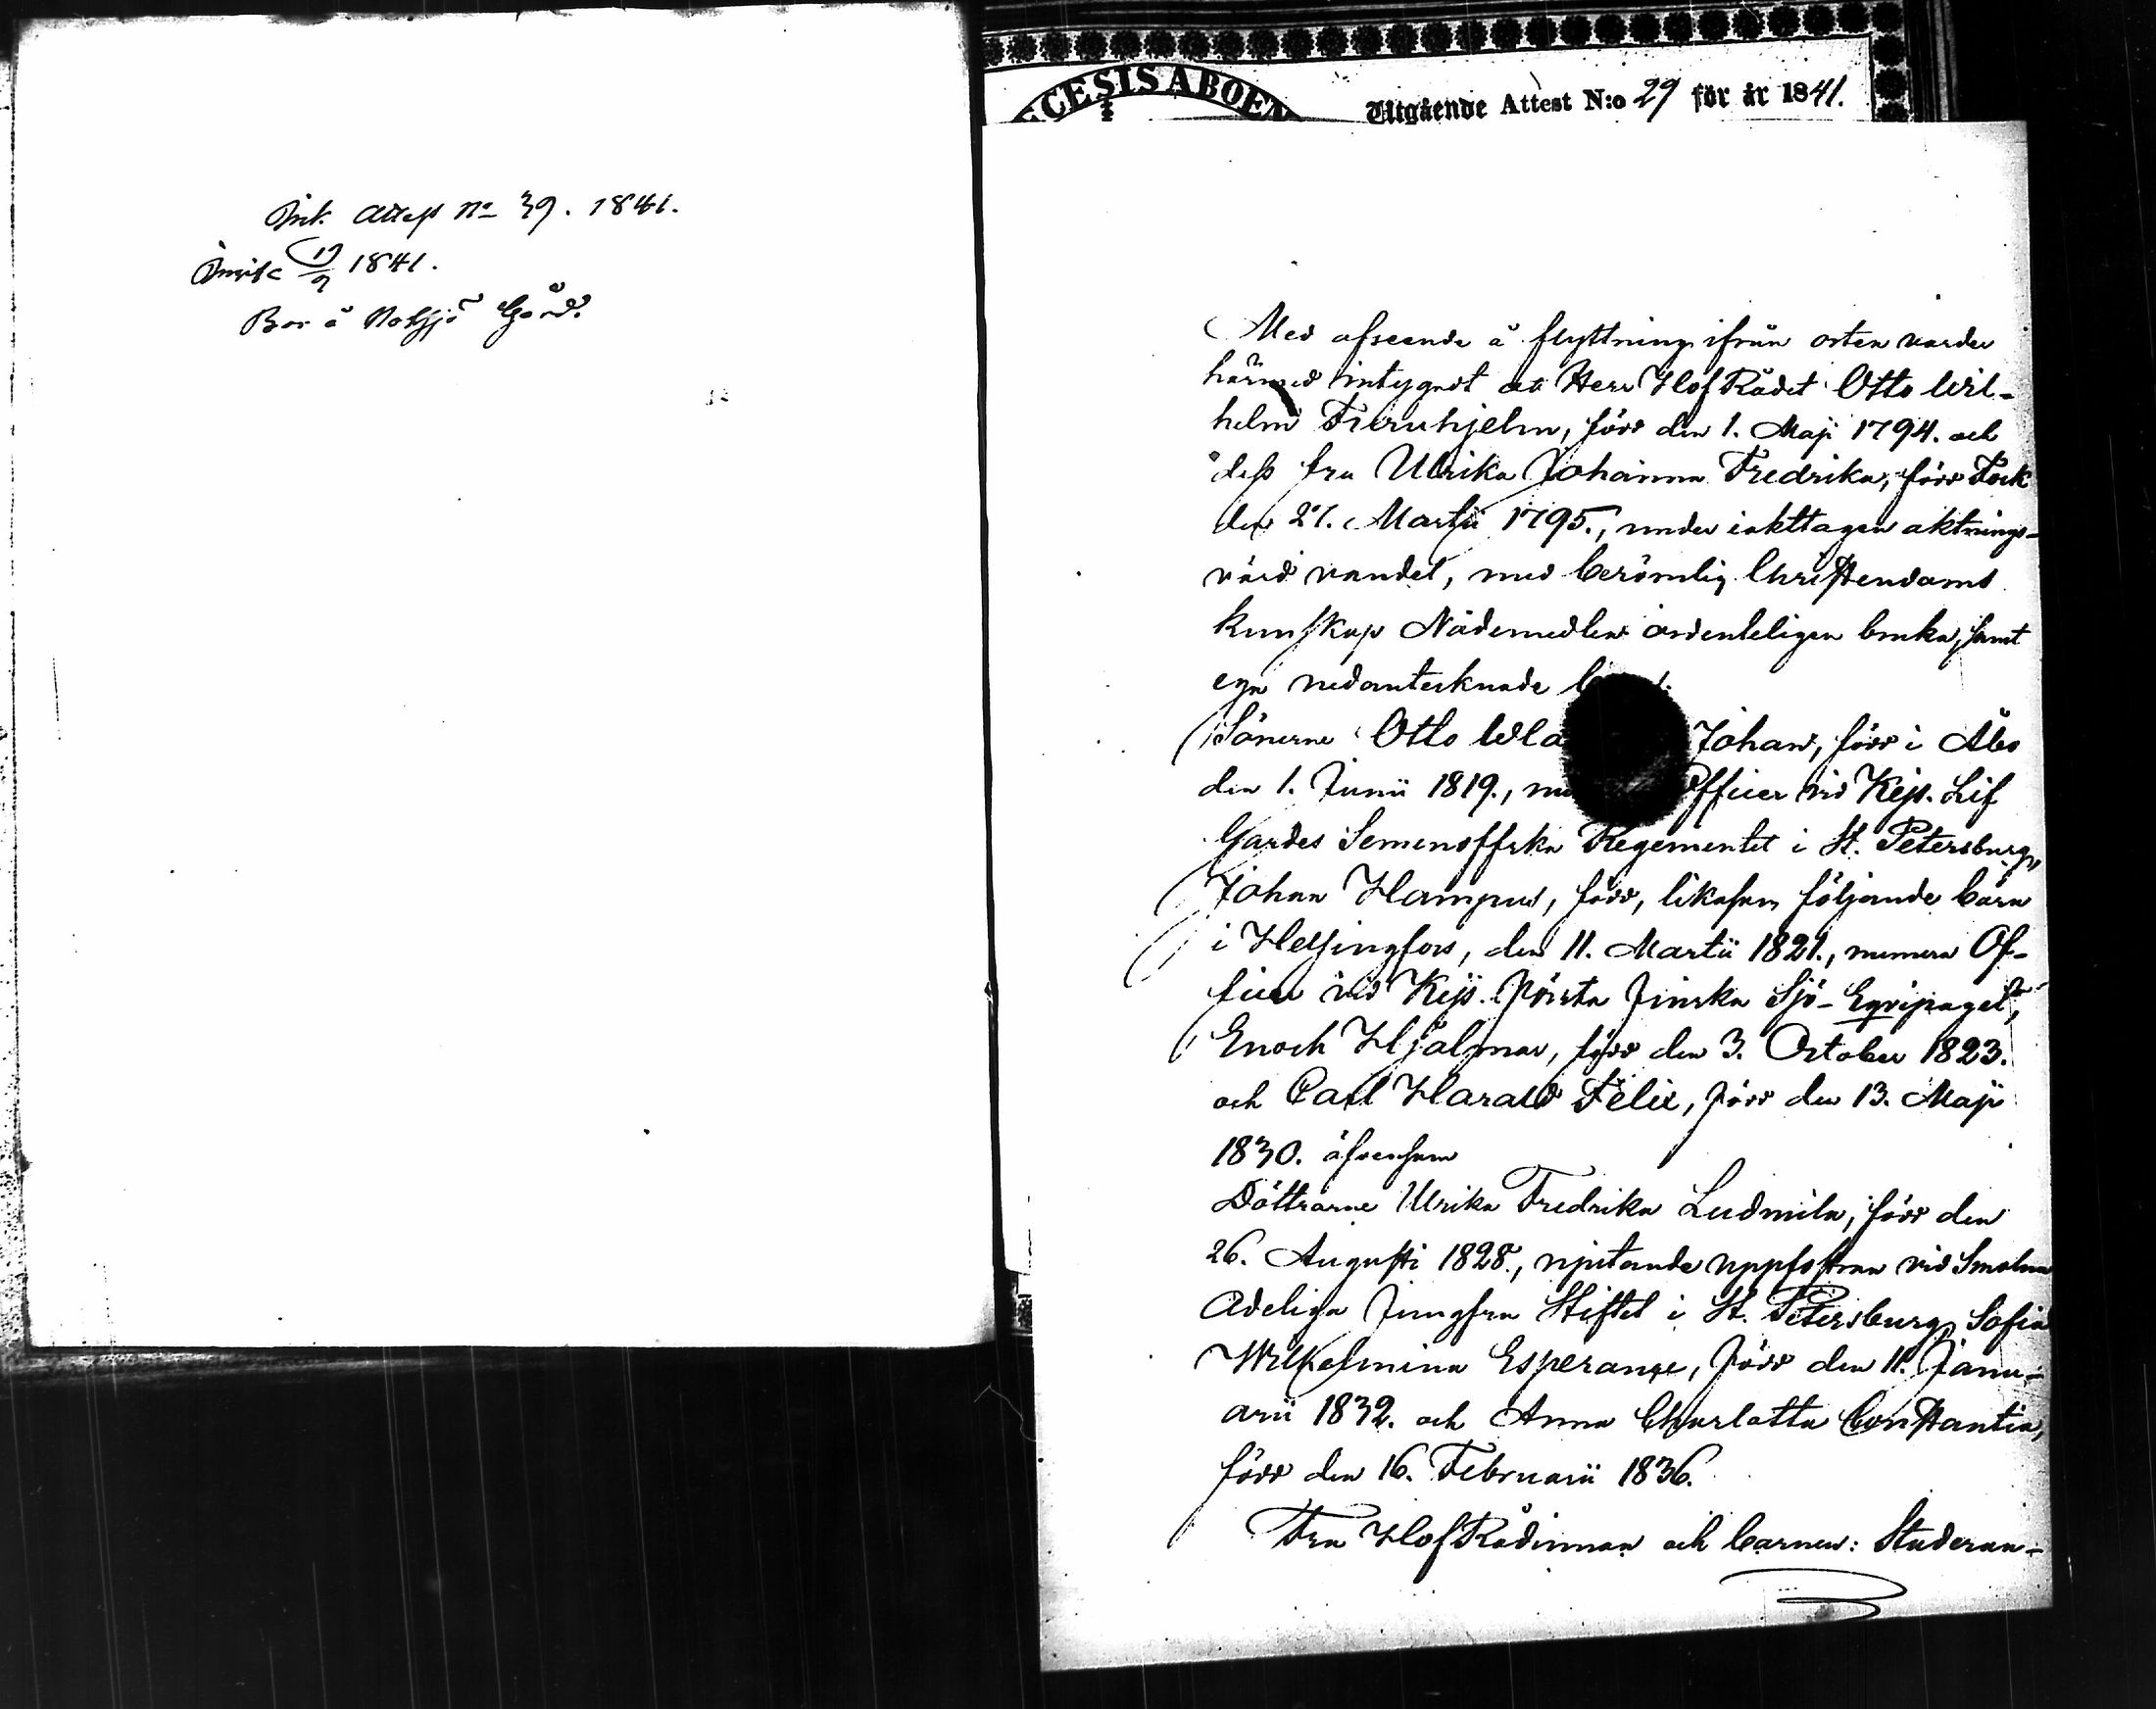 Ink. Attest No 39. 1841.
1841.
Bor å Gård.
CESIS ABOEN
Utgående Attest N:o 29 för år 1841.
Med afseende å flyttning ifrån orten varder
härmed intygadt att Herr HofRådet Otto Wil-
helm Furuhjelm, född den 1. Maji 1794. och
dess fru Ulrika Johanna Fredrika, född Fock
den 27. Martii 1795., under iakttagen aktnings-
värd vandel, med berömlig Christendoms
kunskap Nådemedlen ordenteligen bruka, samt
ega nedantecknade
Sönerne Otto Wla Johan, född i Åbo
den 1. Junii 1819., Officer vid Kejs. Lif
Gardes Semenoffska Regementet i St. Petersburg,
Johan Hampus, född, likasom följande barn
i Helsingfors, den 11. Martii 1821., numera Of-
ficer vid Kejs. Första Finska Sjö-Eqvipaget,
Enoch Hjalmar, född den 3. October 1823.
och Carl Harald Felix, född den 13. Maji
1830. äfvensom
Döttrarne Ulrika Fredrika Ludmila, född den
26. Augusti 1828., njutande uppfostran vid Smolna
Adeliga Jungfru Stiftet i St. Petersburg, Sofia
Wilhelmina Esperance, född den 11. Janu-
arii 1832. och Anna Charlotta Constantia,
född den 16. Februarii 1836.
Fru HofRådinnan och barnen: Studeran-